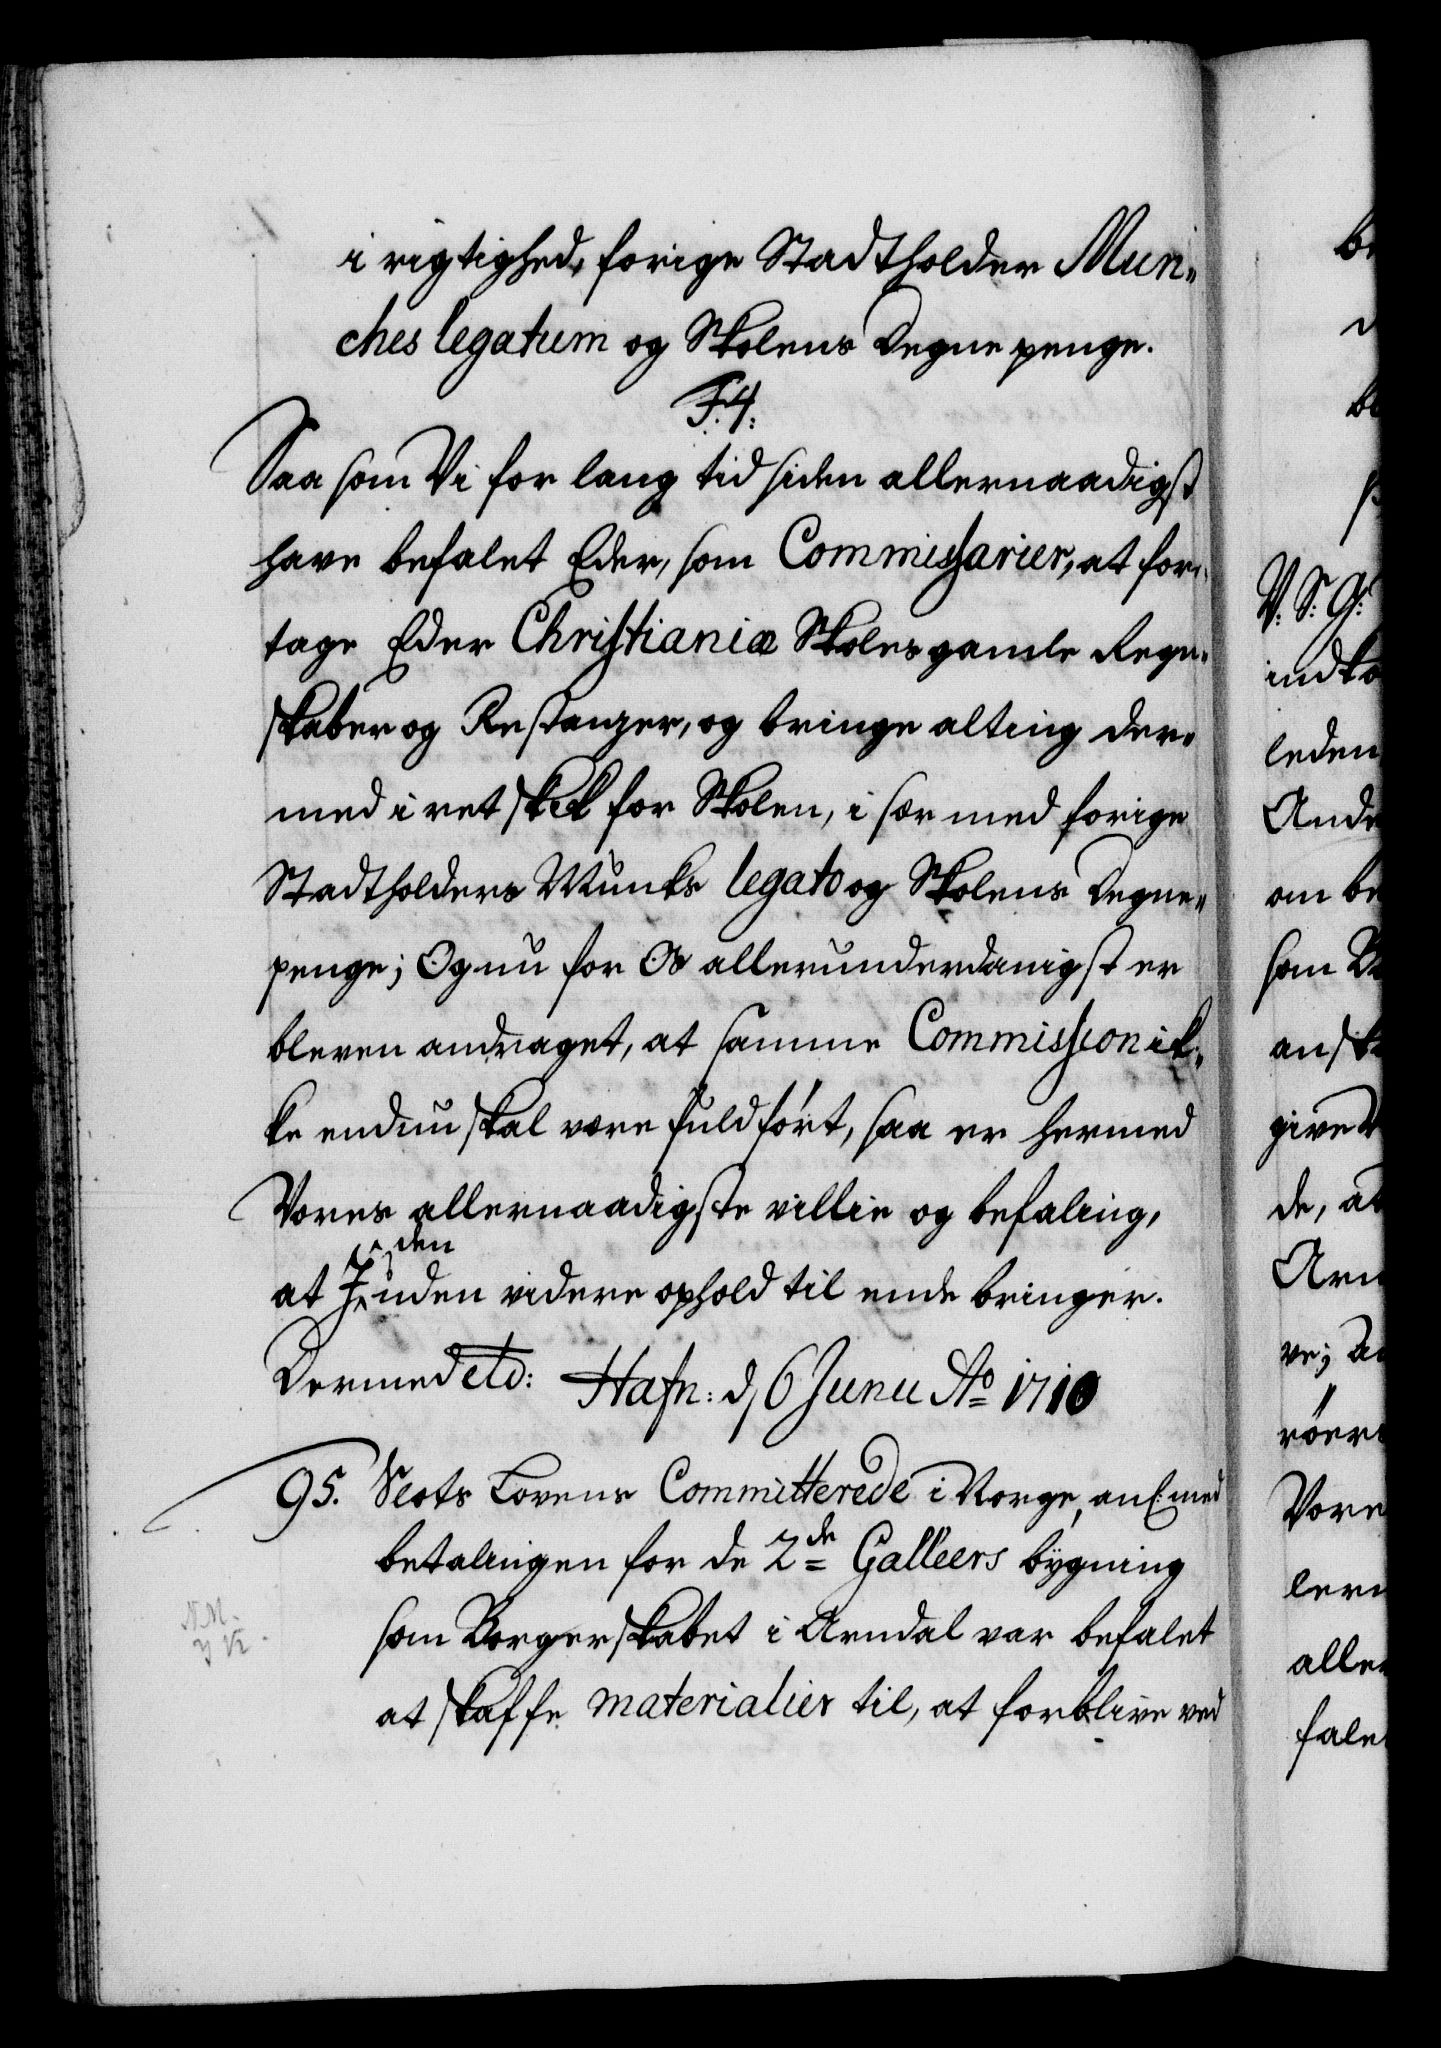 i rigtighed, forige Stadtholder Mun-
ches legatum og Skolens Degne penge.
F. 4.
Saa som Vi for lang tid siden allernaadigst
have befalet Eder, som Commissarier, at fore-
tage Eder Christianiæ Skoles gamle Regn-
skaber og Restanzer, og bringe alting der-
med i ret skik for Skolen, i sær med forige
Stadtholders Munks legato og Skolens Degne-
penge; Og nu for Os allerunderdanigst er
bleven andraget, at samme Commission ik-
ke endnu skal være fuldført, saa er hermed
Vores allernaadigste villie og befaling,
at I den uden videre ophold til ende bringer.
Dermed etc: Hafn: d 6 Junii Ao 1710
95. Slots Lovens Committerede i Norge, anl: med
betalingen for de 2de Galleers bygning
som Borgerskabet i Arndal var befalet
at skaffe materialier til, at forblive ved
V. S. G.
indko
leden
Andr
om be
som
ansk
give
de, at
Arn
ve;
røers
Vore
lern
aller
fale